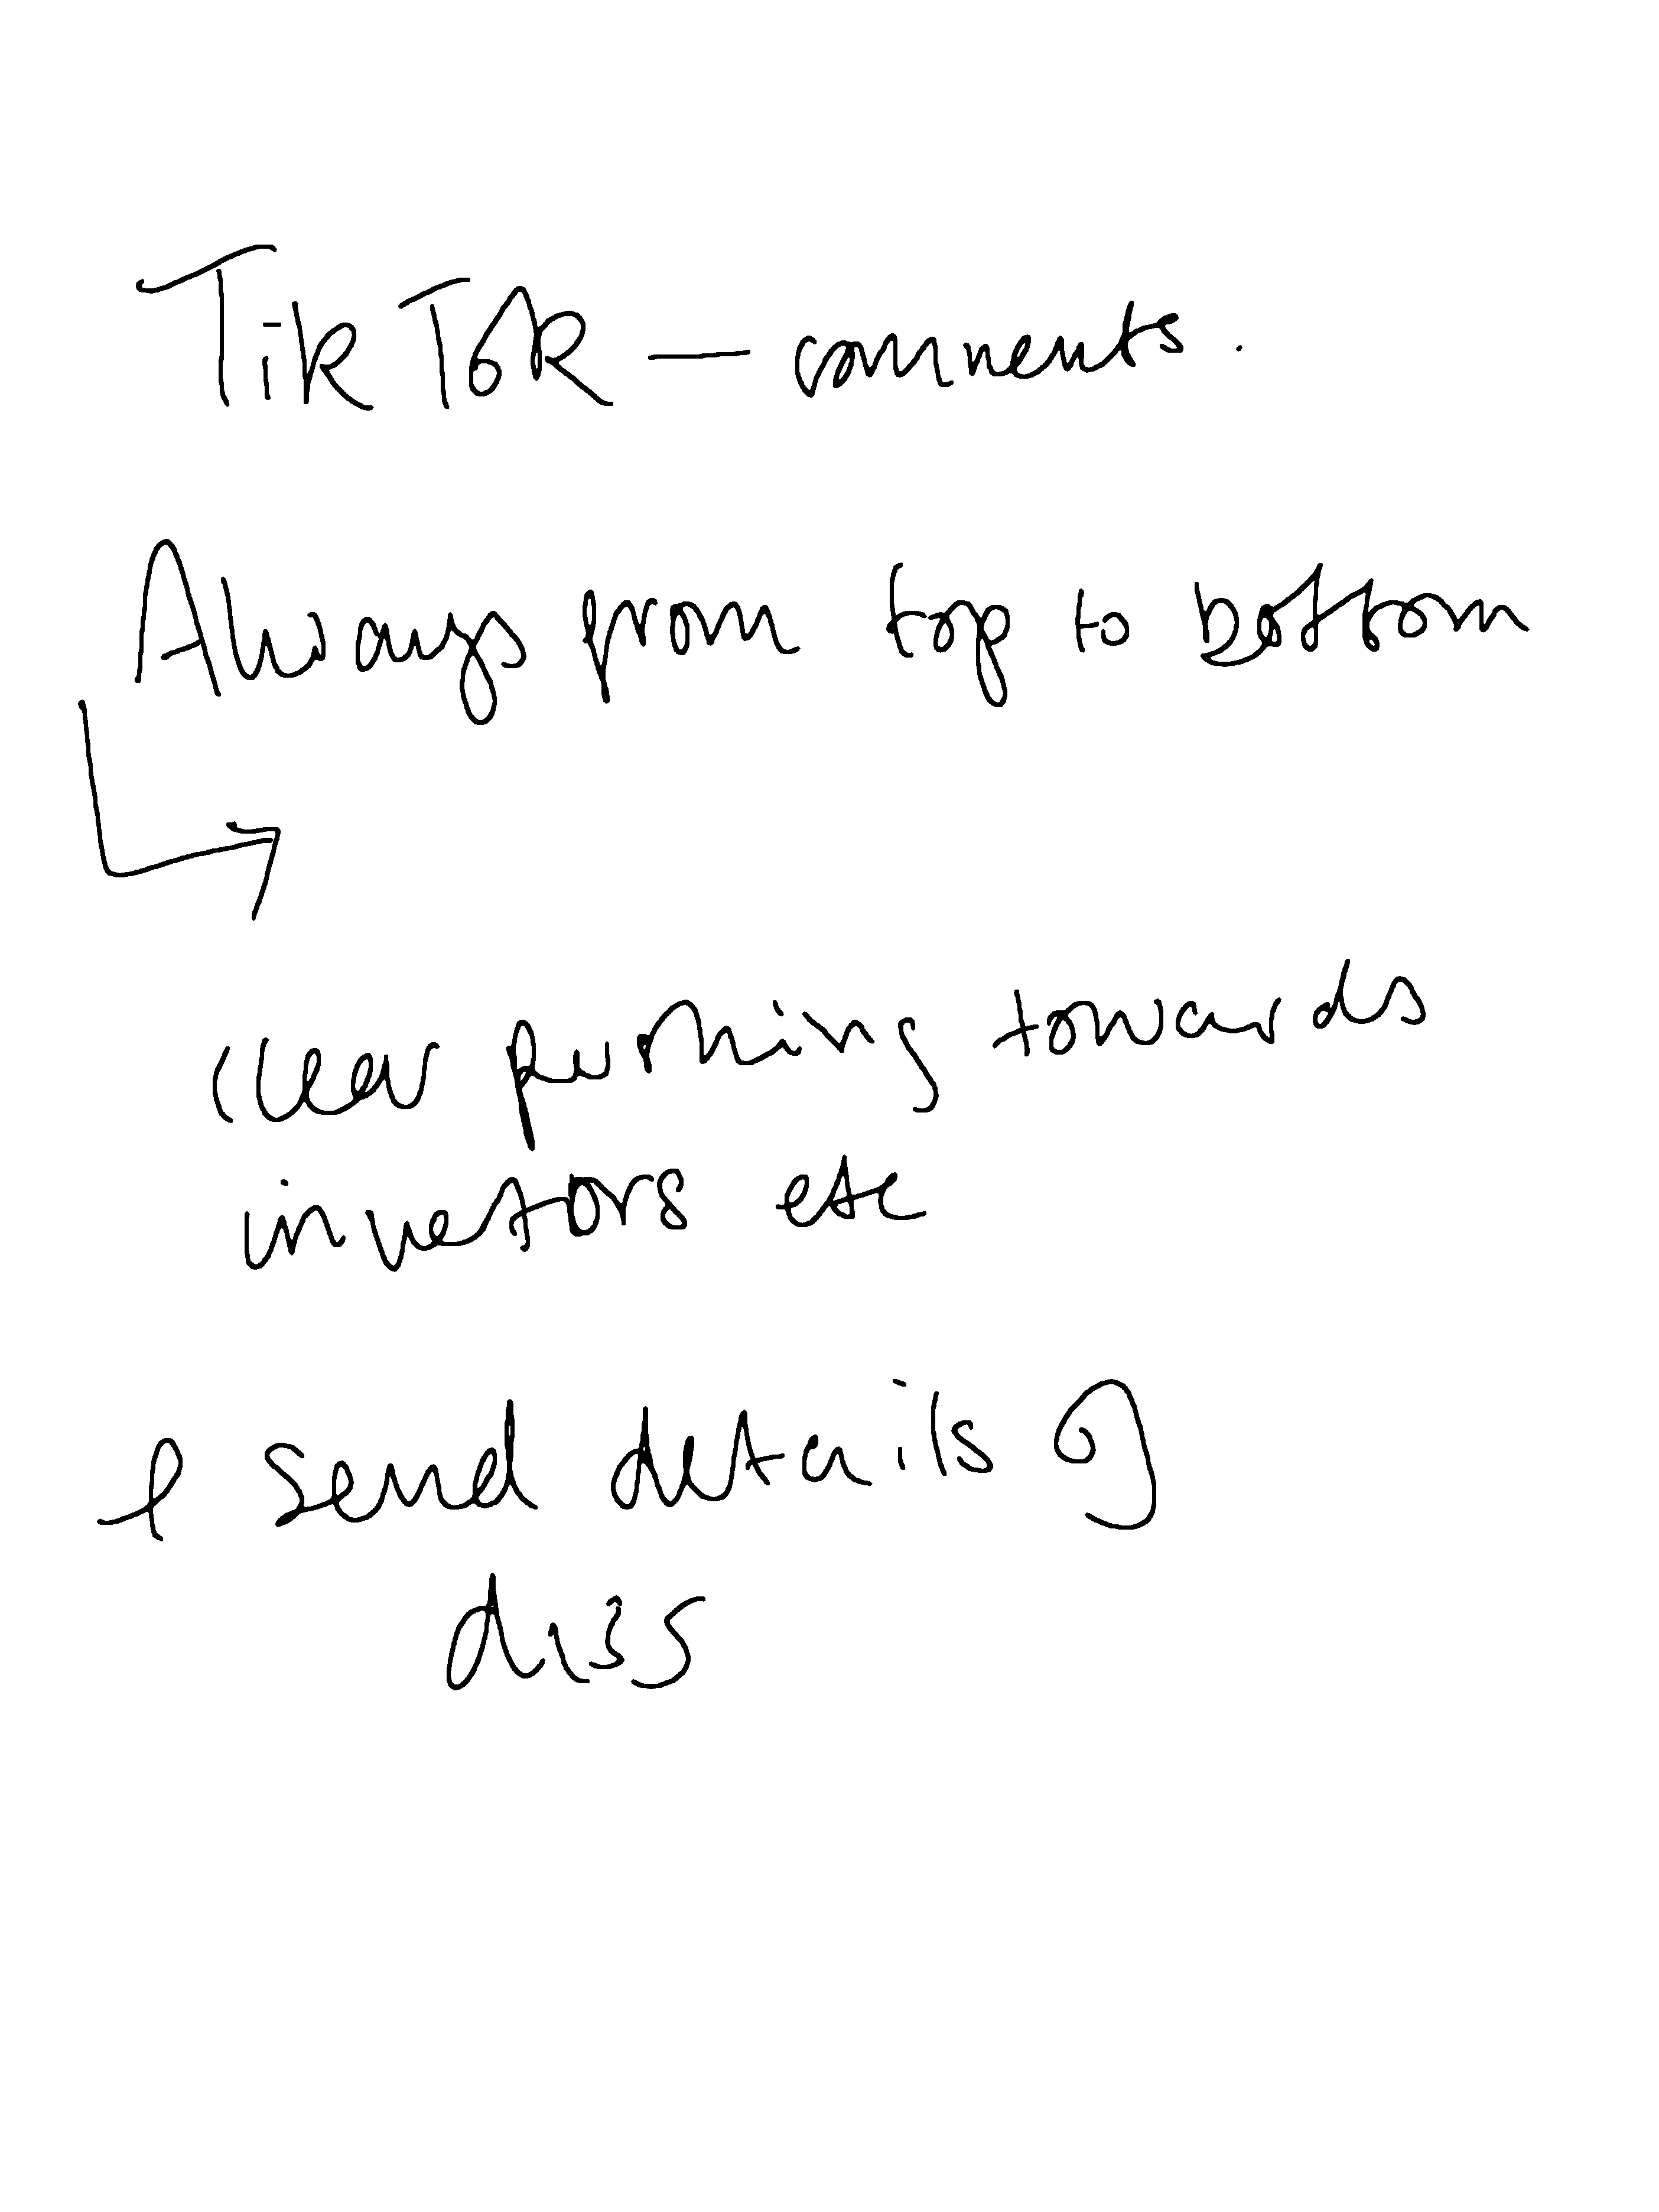 TikTok - comments.
Always from top to bottom
clear pushing towards
investors etc
& send details of